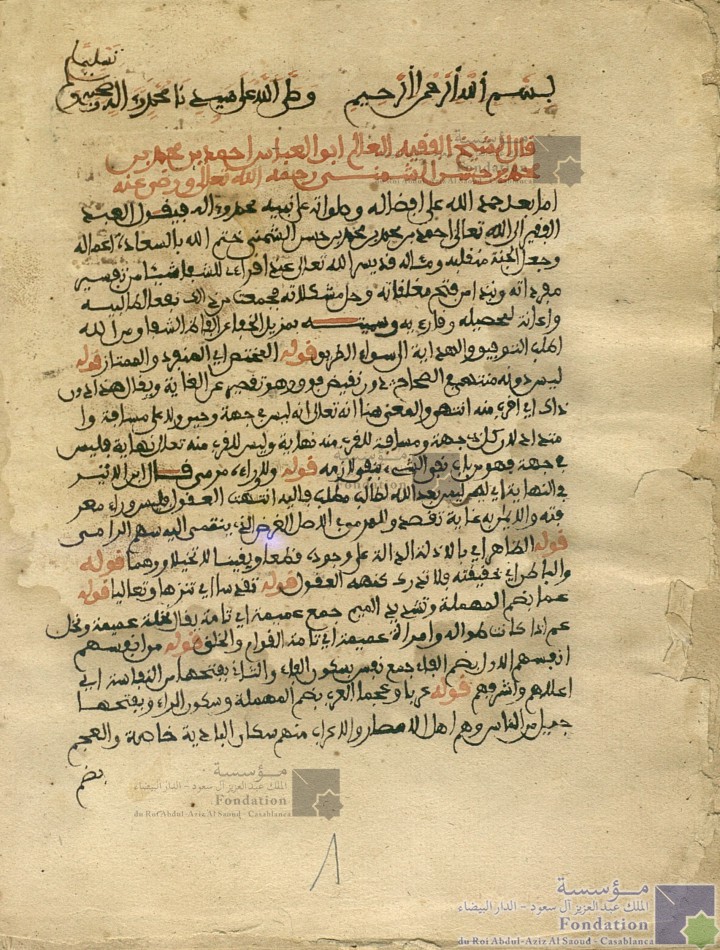 تسليما
بسم الله الرحمن الرحيم وصلى الله على سيدنا محمد وءاله وصحبه و
قال الشيخ الفقيه العالم ابو العباس احمد بن محمد بن
محمد بن حسن الشمني رحمه الله تعالى ورضي عنه
اما بعد حمد الله على افضاله وصلواته على نبيه محمد وءاله فيقول العبد
الفقير الى الله تعالى احمد بن محمد بن محمد بن حسن الشمني ختم الله بالسعادة اعماله
وجعل الجنة منقلبه ومئاله قد يسر الله تعالى عند اقراءي للشفا شيئا من تفسير
مفرداته ونبذا من فتح مغلقاته وحل مشكلاته فجمعت من ذلك نفعا لطالبيه
واعانة لمحصله وقارءيه وسميته بمزيل الخفا عن الفاظ الشفا ومن الله
اطلب التوفيق والهداية الى سواء الطريق قوله المختص اي المنفرد والممتاز قوله
ليس دونه منتهى في الصحاح دون نقيض فوق وهو تقصير عن الغاية ويقال هذا دون
ذاك اي اقرب منه انتهى والمعنى هنا انه تعالى انه ليس في جهة وحيز ولا على مسافة وا
متداد لان كل ذي جهة ومسافة للقرب منه نهاية وليس للقرب منه تعالى نهاية فليس
في جهة فهو من باب نفي الشيء بنفي لازمه قوله ولا وراءه مرمى قال ابن الاثير
في النهاية اي ليس بعد الله لطالب مطلب فاليه انتهت العقول فليس وراء معر
فته والايمان به غاية تقصد والمرمى في الاصل الغرض الذي ينتهي اليه سهم الرامي
قوله الظاهر اي بالادلة الدالة على وجوده قطعا ويقينا لا تخيلا ووهما قوله
والباطن اي حقيقته فلا تدرك كنهه العقول قوله تقدسا اي تنزها وتعاليا قوله
عما بضم المهملة وتشديد الميم جمع عميمة اي تامة يقال نخلة عميمة ونخل
عم اذا كانت طواله وامراة عميمة اي تامة القوام والخلق قوله من انفسهم
انفسهم الاول بضم الفاء جمع نفس بسكون الفاء والثاني بفتحها من النفاسة اي
اعلاهم واشرفهم قوله عربا وعجما العرب بضم المهملة وسكون الراء وبفتحها
جيل من الناس وهم اهل الامصار والاعراب منهم سكان البادية خاصة والعجم
بضم
مؤسسة
الملك عبد العزيز آل سعود - الدار البيضاء
Fondation
du Roi Abdul-Aziz Al Saoud - Casablanca
مؤسسة
الملك عبد العزيز آل سعود - الدار البيضاء
Fondation
du Roi Abdul-Aziz Al Saoud - Casablanca